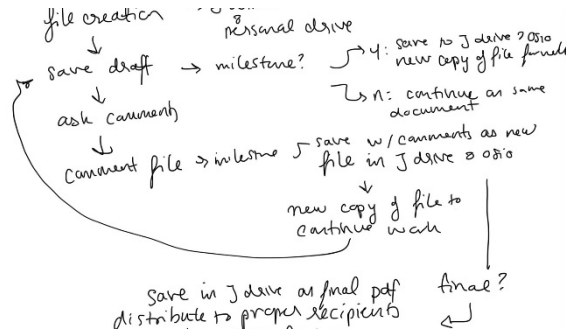 file creation
personal drive
save draft → milestone? y: save to J drive > 0310
new copy of file
n: continue on same
document
ask comments
comment file → milestone save w/ comments as new
file in J drive > 0310
new copy of file to
continue work
save in J drive as final pdf final?
distribute to proper recipients